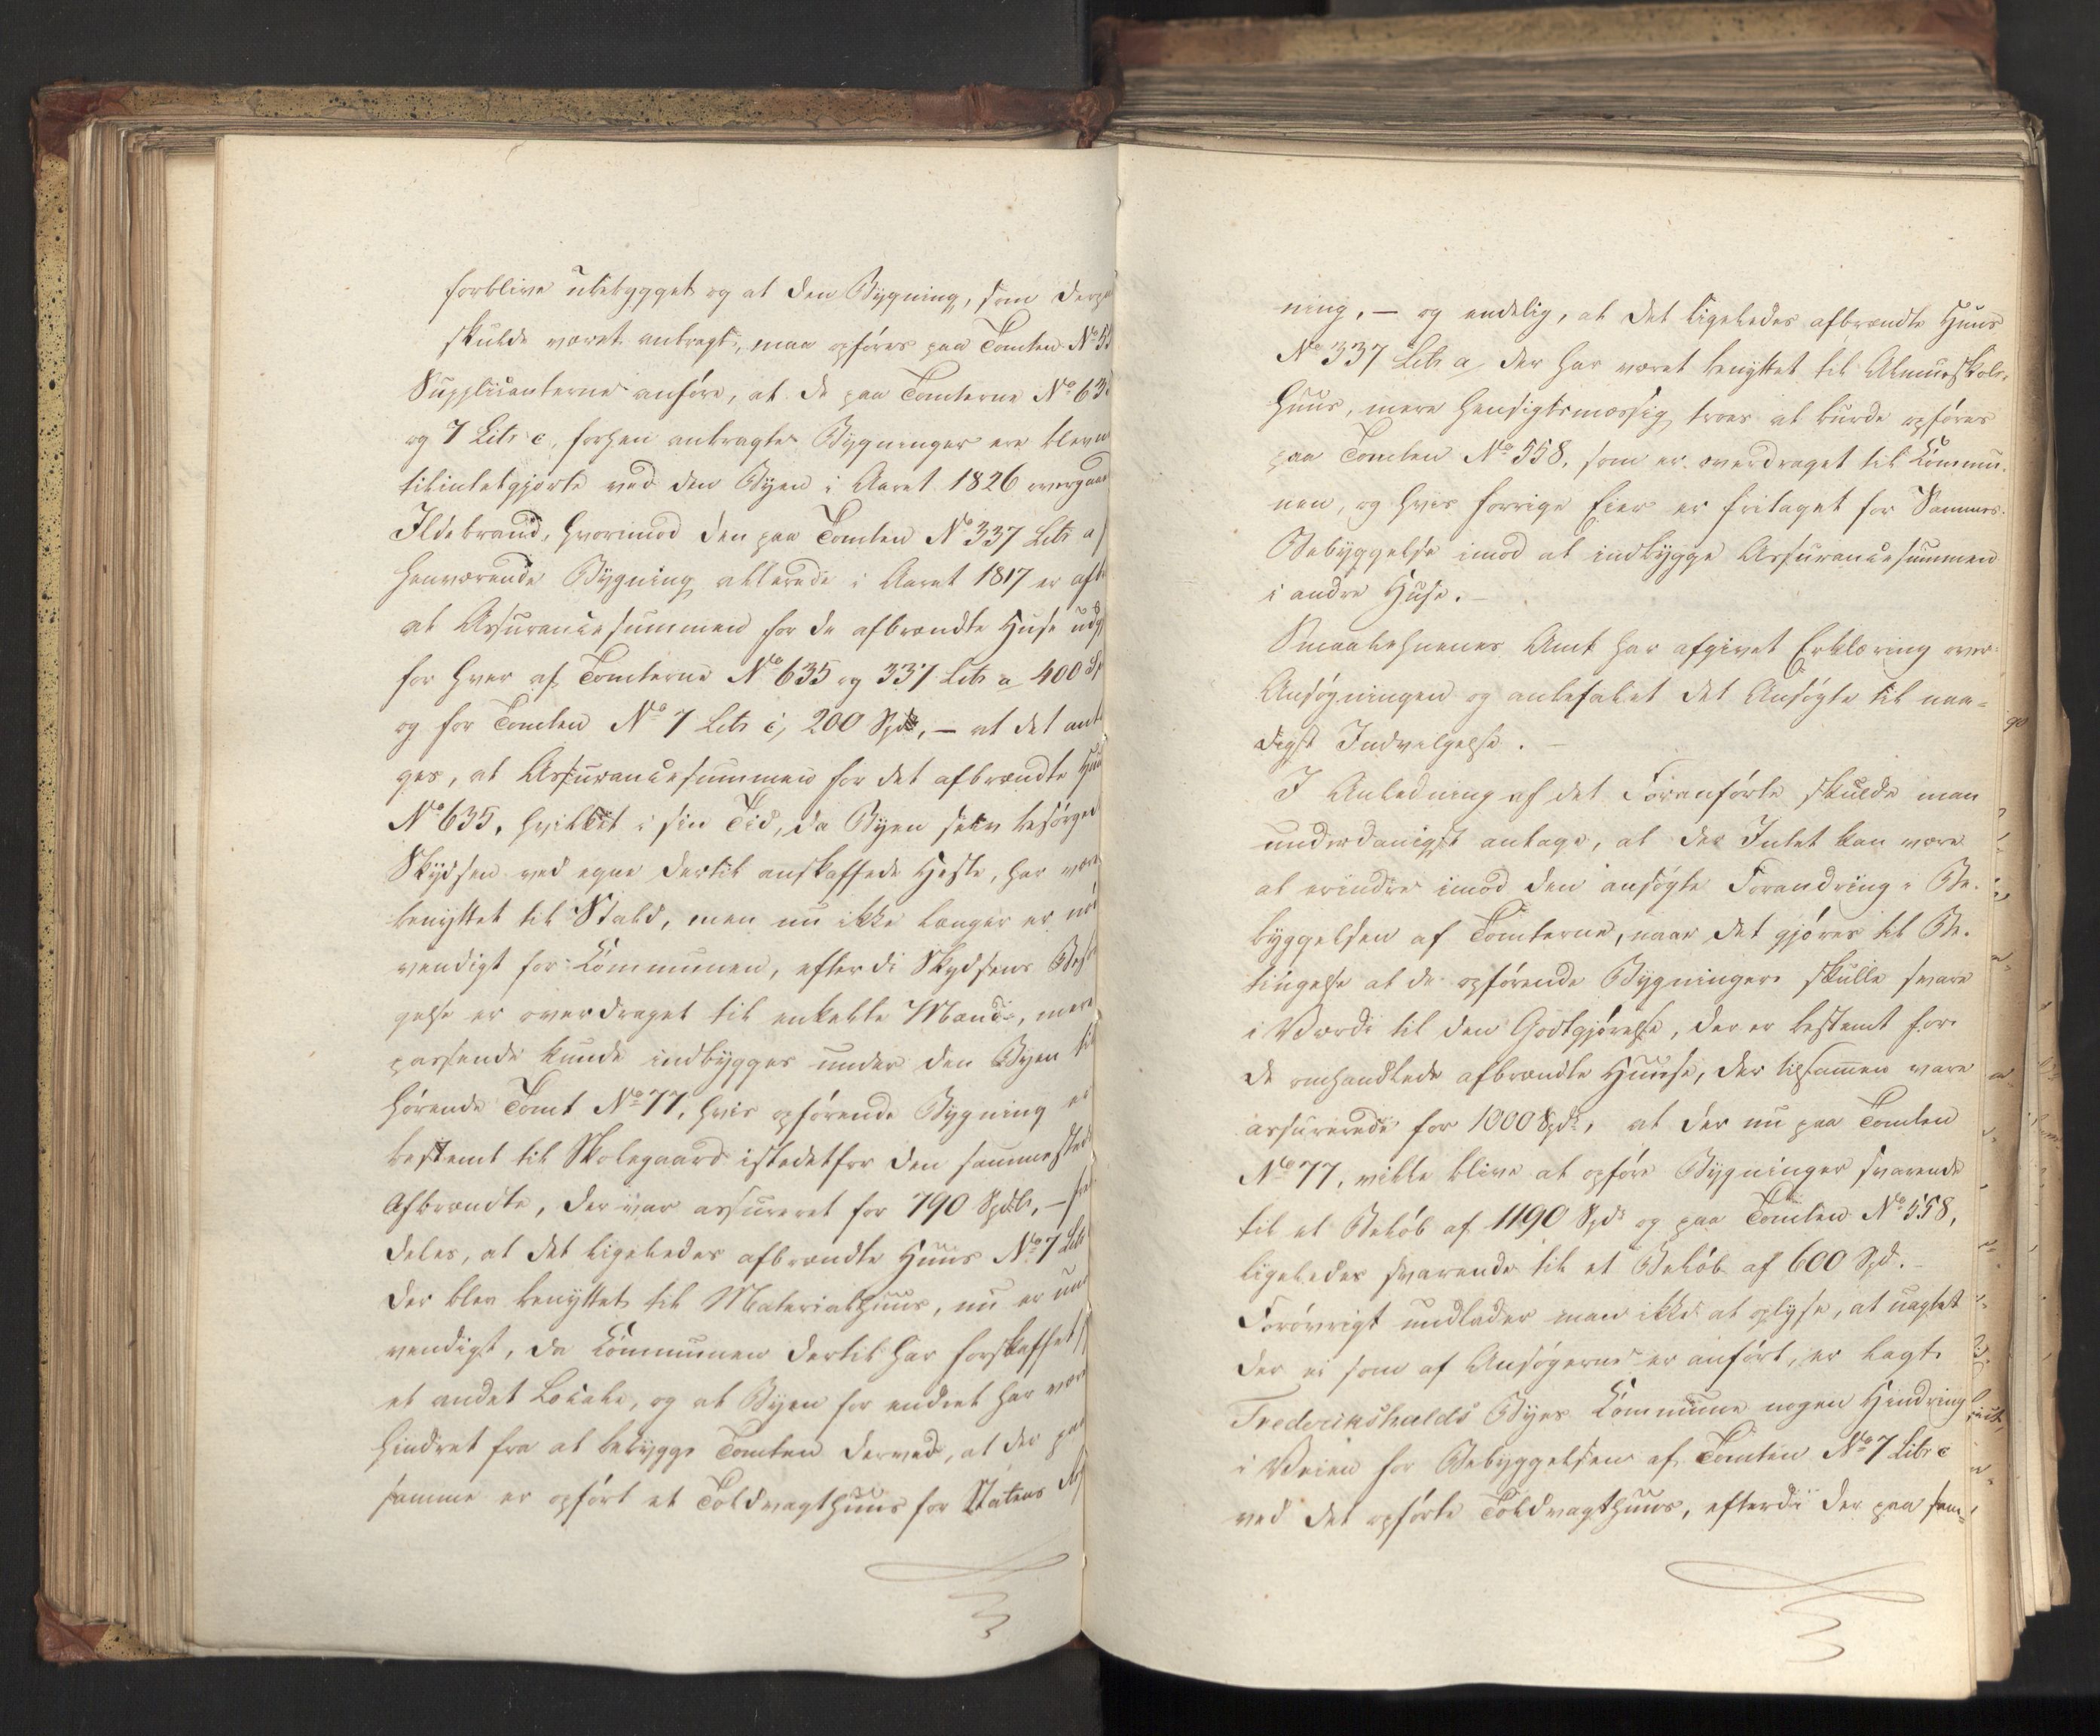 forblive ubebygget og at den Bygning, som derpaa
skulde været anbragt, maa opføres paa Tomten No 55
Supplicanterne anføre, at de paa Tomterne No 635
og 7 Litr c, forhen anbragte Bygninger ere blevne
tilintetgjorte ved den Byen i Aaret 1826 overgaaede
Ildebrand, hvorimod den paa Tomten No 337 Litr a
henværende Bygning allerede i Aaret 1817 er afbr
at Assurancesummen for de afbrændte Huse udgj
for hver af Tomterne No 635 og 337 Litr a 400 Sp
og for Tomten No 7 Litr c, 200 Spd, – at det anta
ges, at Assurancesummen for det afbrændte Huus
No 635, hvilket i sin Tid, da Byen selv besørgede
Skydsen ved egne dertil anskaffede Heste, har været
benyttet til Stald, men nu ikke længer er nød
vendigt for Kommunen, efterdi Skydsens Besør
gelse er overdraget til enkelte Mænd, mere
passende kunde indbygges under den Byen til
hørende Tomt No 77, hvis opførende Bygning er
bestemt til Skolegaard istedetfor den sammesteds
Afbrændte, der var assureret for 790 Spdlr, –
deles, at det ligeledes afbrændte Huus No 7 Litr
der blev benyttet til Materialhuus, nu er unød
vendigt, da Kommunen dertil har forskaffet sig
et andet Locale, og at Byen for endeel har været
hindret fra at bebygge Tomten derved, at der paa
samme er opført et Toldvagthuus for Statens
ning, – og endelig, at det ligeledes afbrændte Huus
No 337 Litr a, der har været benyttet til Almueskole-
huus, mere hensigtsmæssig troes at burde opføres
paa Tomten No 558, som er overdraget til Kommu-
nen, og hvis forrige Eier er fritaget for Sammes
Bebyggelse imod at indbygge Assurancesummen
i andre Huse. –
Smaalehnenes Amt har afgivet Erklæring over
Ansøgningen og anbefalet det Ansøgte til naa-
digst Indvilgelse. –
I Anledning af det Foranførte skulde man
underdanigst antage, at der Intet kan være
at erindre imod den ansøgte Forandring i Be-
byggelsen af Tomterne, naar det gjøres til Be-
tingelse at de opførende Bygninger skulle svare
i Værdi til den Godtgjørelse, der er bestemt for
de omhandlede afbrændte Huuse, der tilsammen vare
assurerede for 1000 Spd, at der nu paa Tomten
No 77, vilde blive at opføre Bygninger svarende
til et Beløb af 1190 Spd og paa Tomten No 558,
ligeledes svarende til et Beløb af 600 Spd. –
Forøvrigt undlader man ikke at oplyse, at uagtet
der ei som af Ansøgerne er anført, er lagt
Frederikshalds Byes Kommune nogen Hindring
i Veien for Bebyggelsen af Tomten No 7 Litr c
ved det opførte Toldvagthuus, efterdi der paa sam-